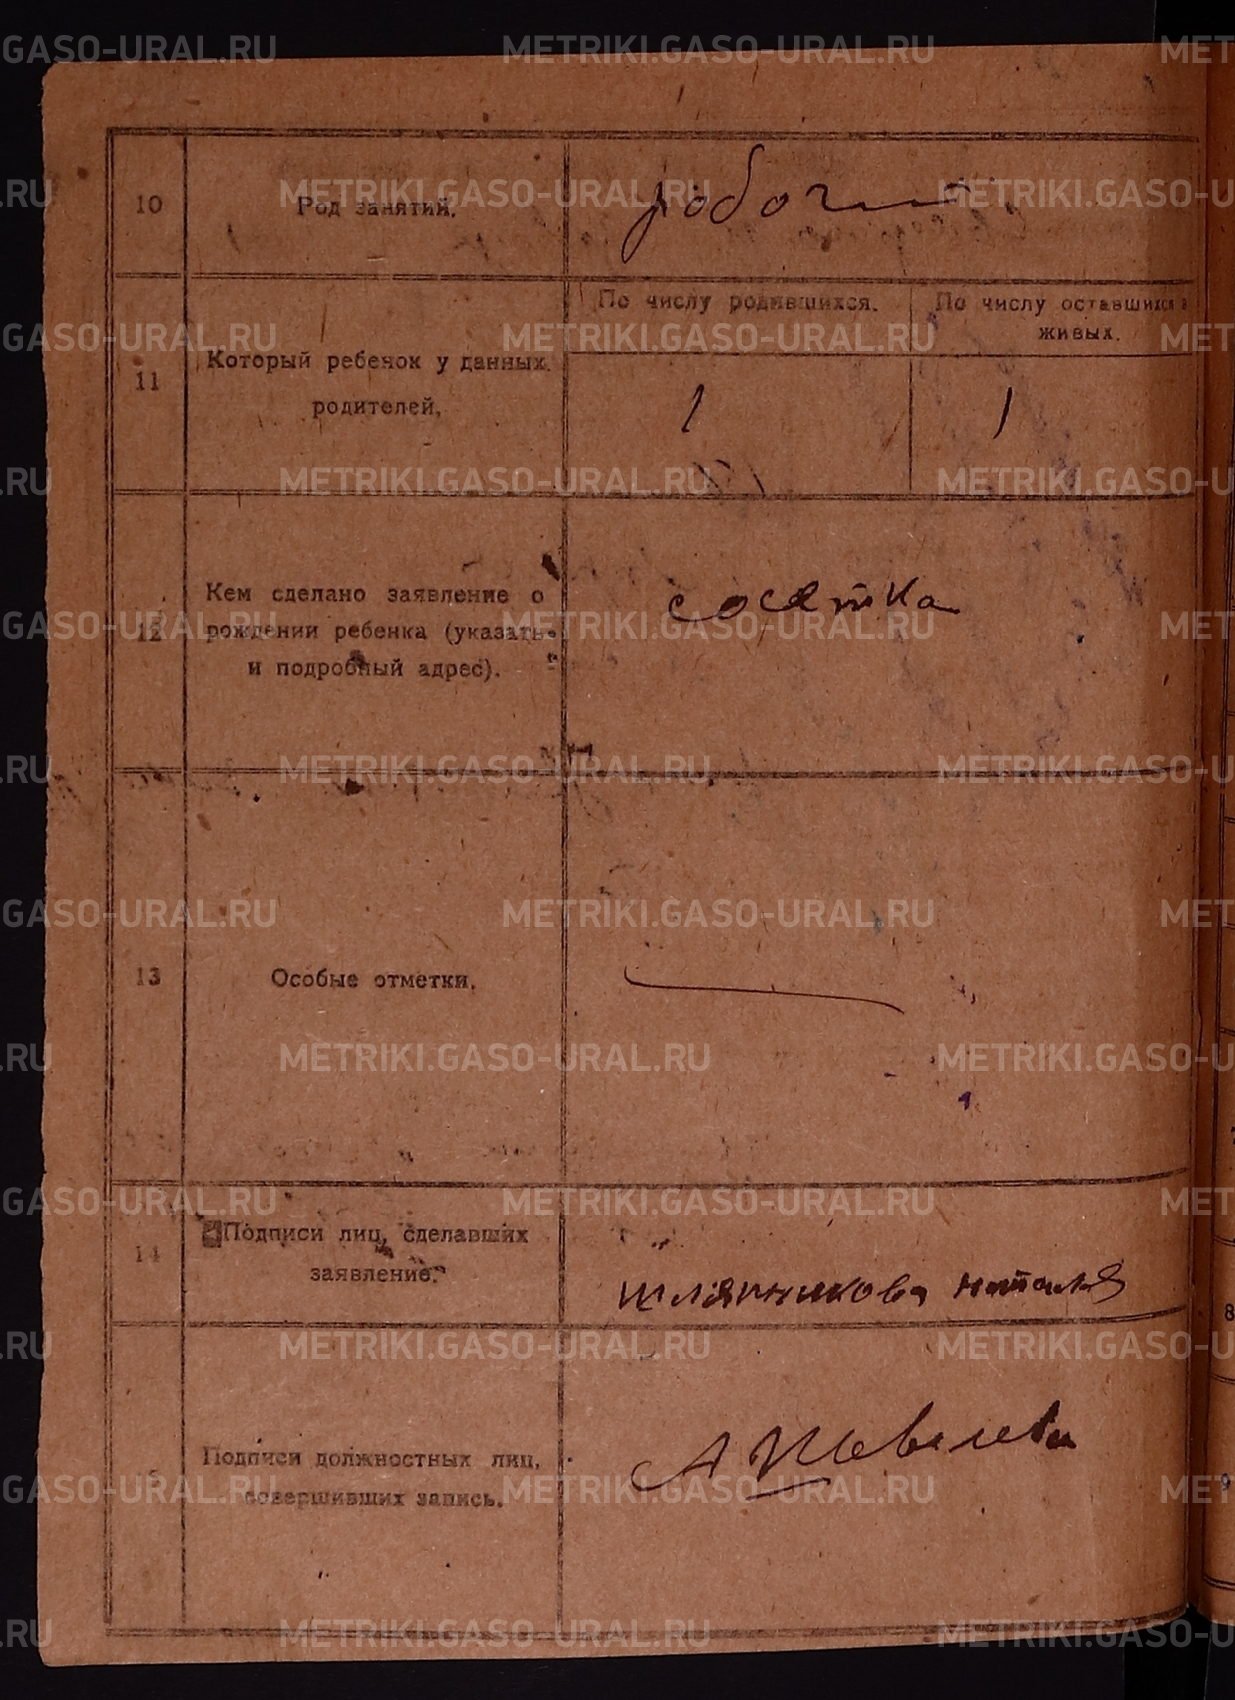 10 Род занятий. рабочий
По числу родившихся. По числу оставшихся в
живых.
11 Который ребенок у данных
родителей.
1 1
12 Кем сделано заявление о
рождении ребенка (указать
и подробный адрес).
соседка
13 Особые отметки.
14 Подписи лиц, сделавших
заявление.
Шляпникова Наталя
Подписи должностных лиц,
совершивших запись.
А Шевелева
METRIKI.GASO-URAL.RU